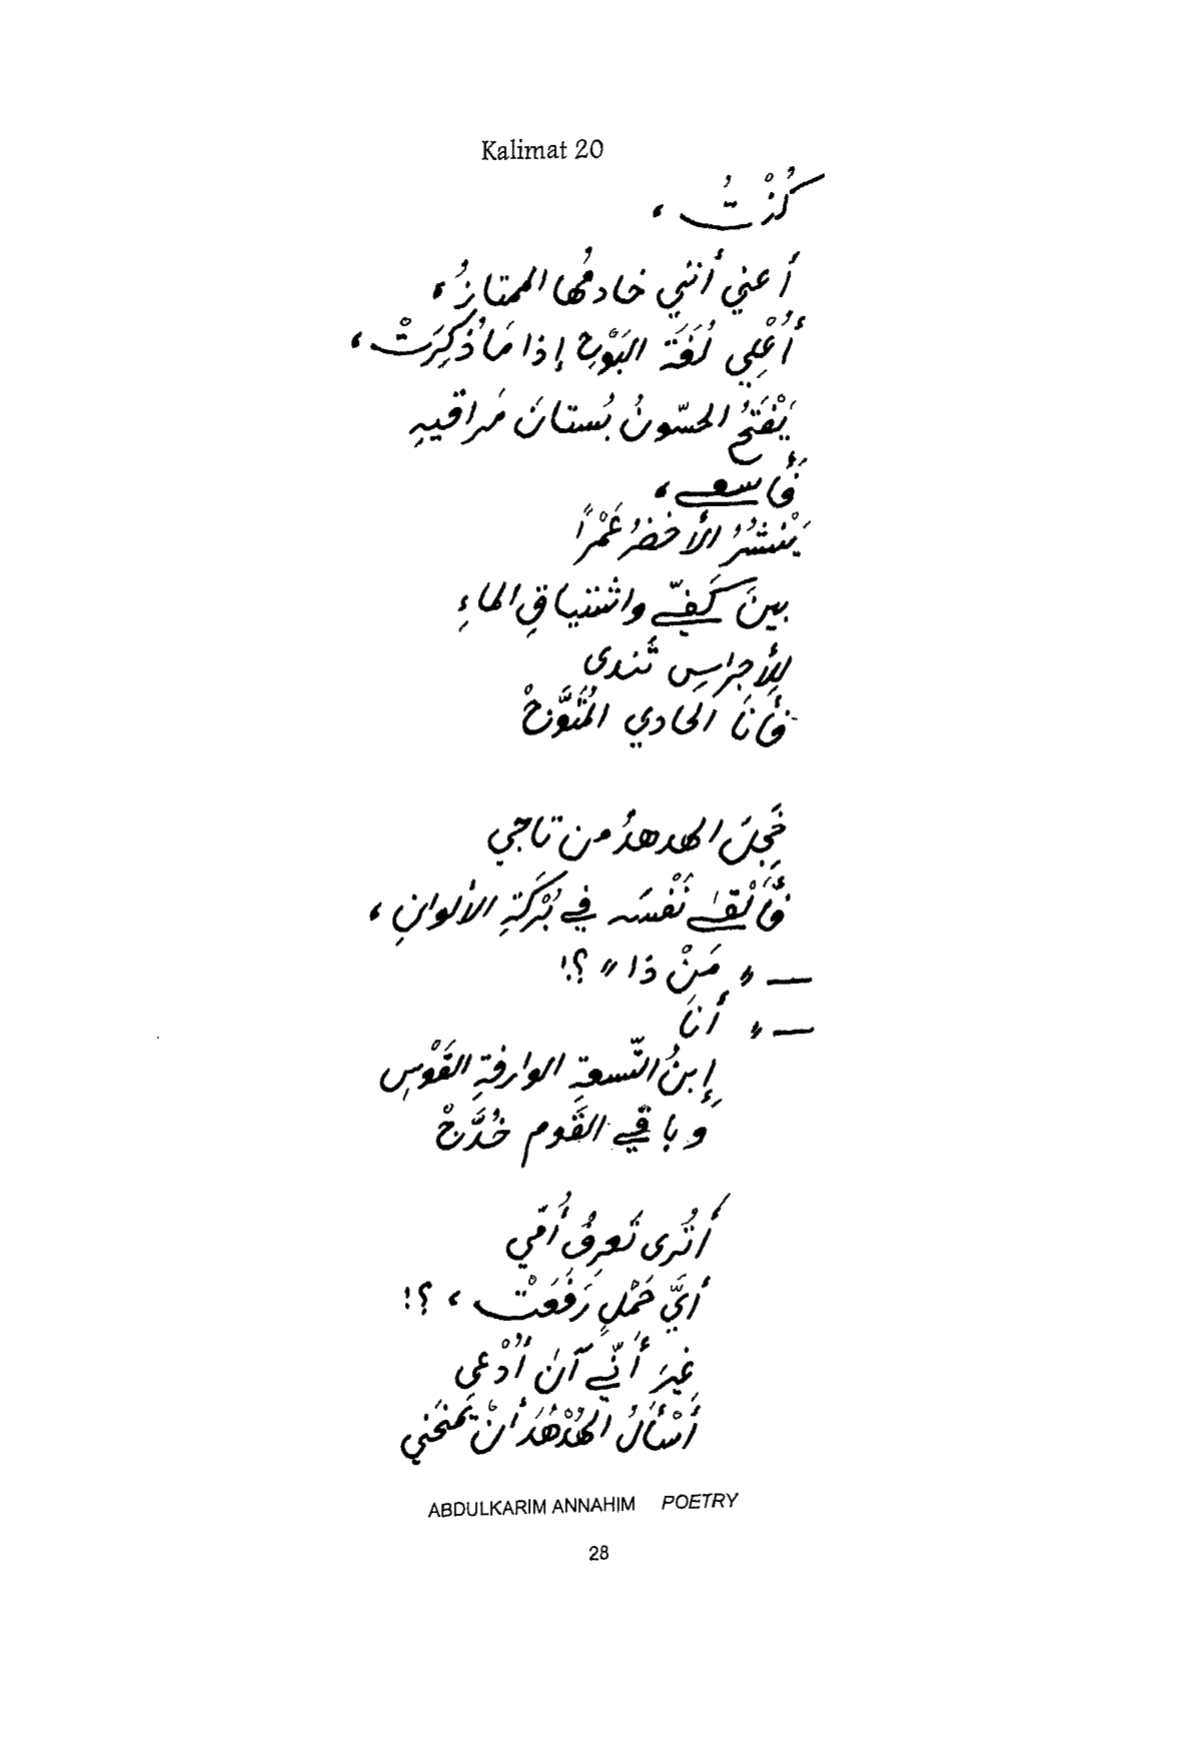 Kalimat 20
كُنْتُ ،
أعني أنني خادمُها الممتازُ ،
أُعْلِي لُغَةَ البَوْحِ إذا مَا ذُكِرَتْ ،
يَفْتَحُ الحسّونُ بُستانَ مَراقيهِ
فَأَسعى ،
يَنْشُرُ الأخضرُ غَمْرًا
بينَ كَفيّ واشتياقِ الماءِ
لِلأجراسِ تَندى
فأَنَا الحادي المُتَوَّجْ
خَجِلَ الهدهدُ من تاجي
فَأَلْقى نَفْسَه في بُرْكَةِ الألوانِ ،
— " مَنْ ذا " ؟!
— " أنَا
إبنُ التّسعةِ الوارفةِ القَوْسِ
وباقي القَوم خُدَّجْ
أَتُرى تَعرِفُ أُمّي
أيَّ حَمْلٍ رَفَعَتْ ، ؟!
غيرَ أَنّي آنَ أُدْعى
أَسْأَلُ الهُدْهُدَ أنْ يَمنحَني
ABDULKARIM ANNAHIM POETRY
28